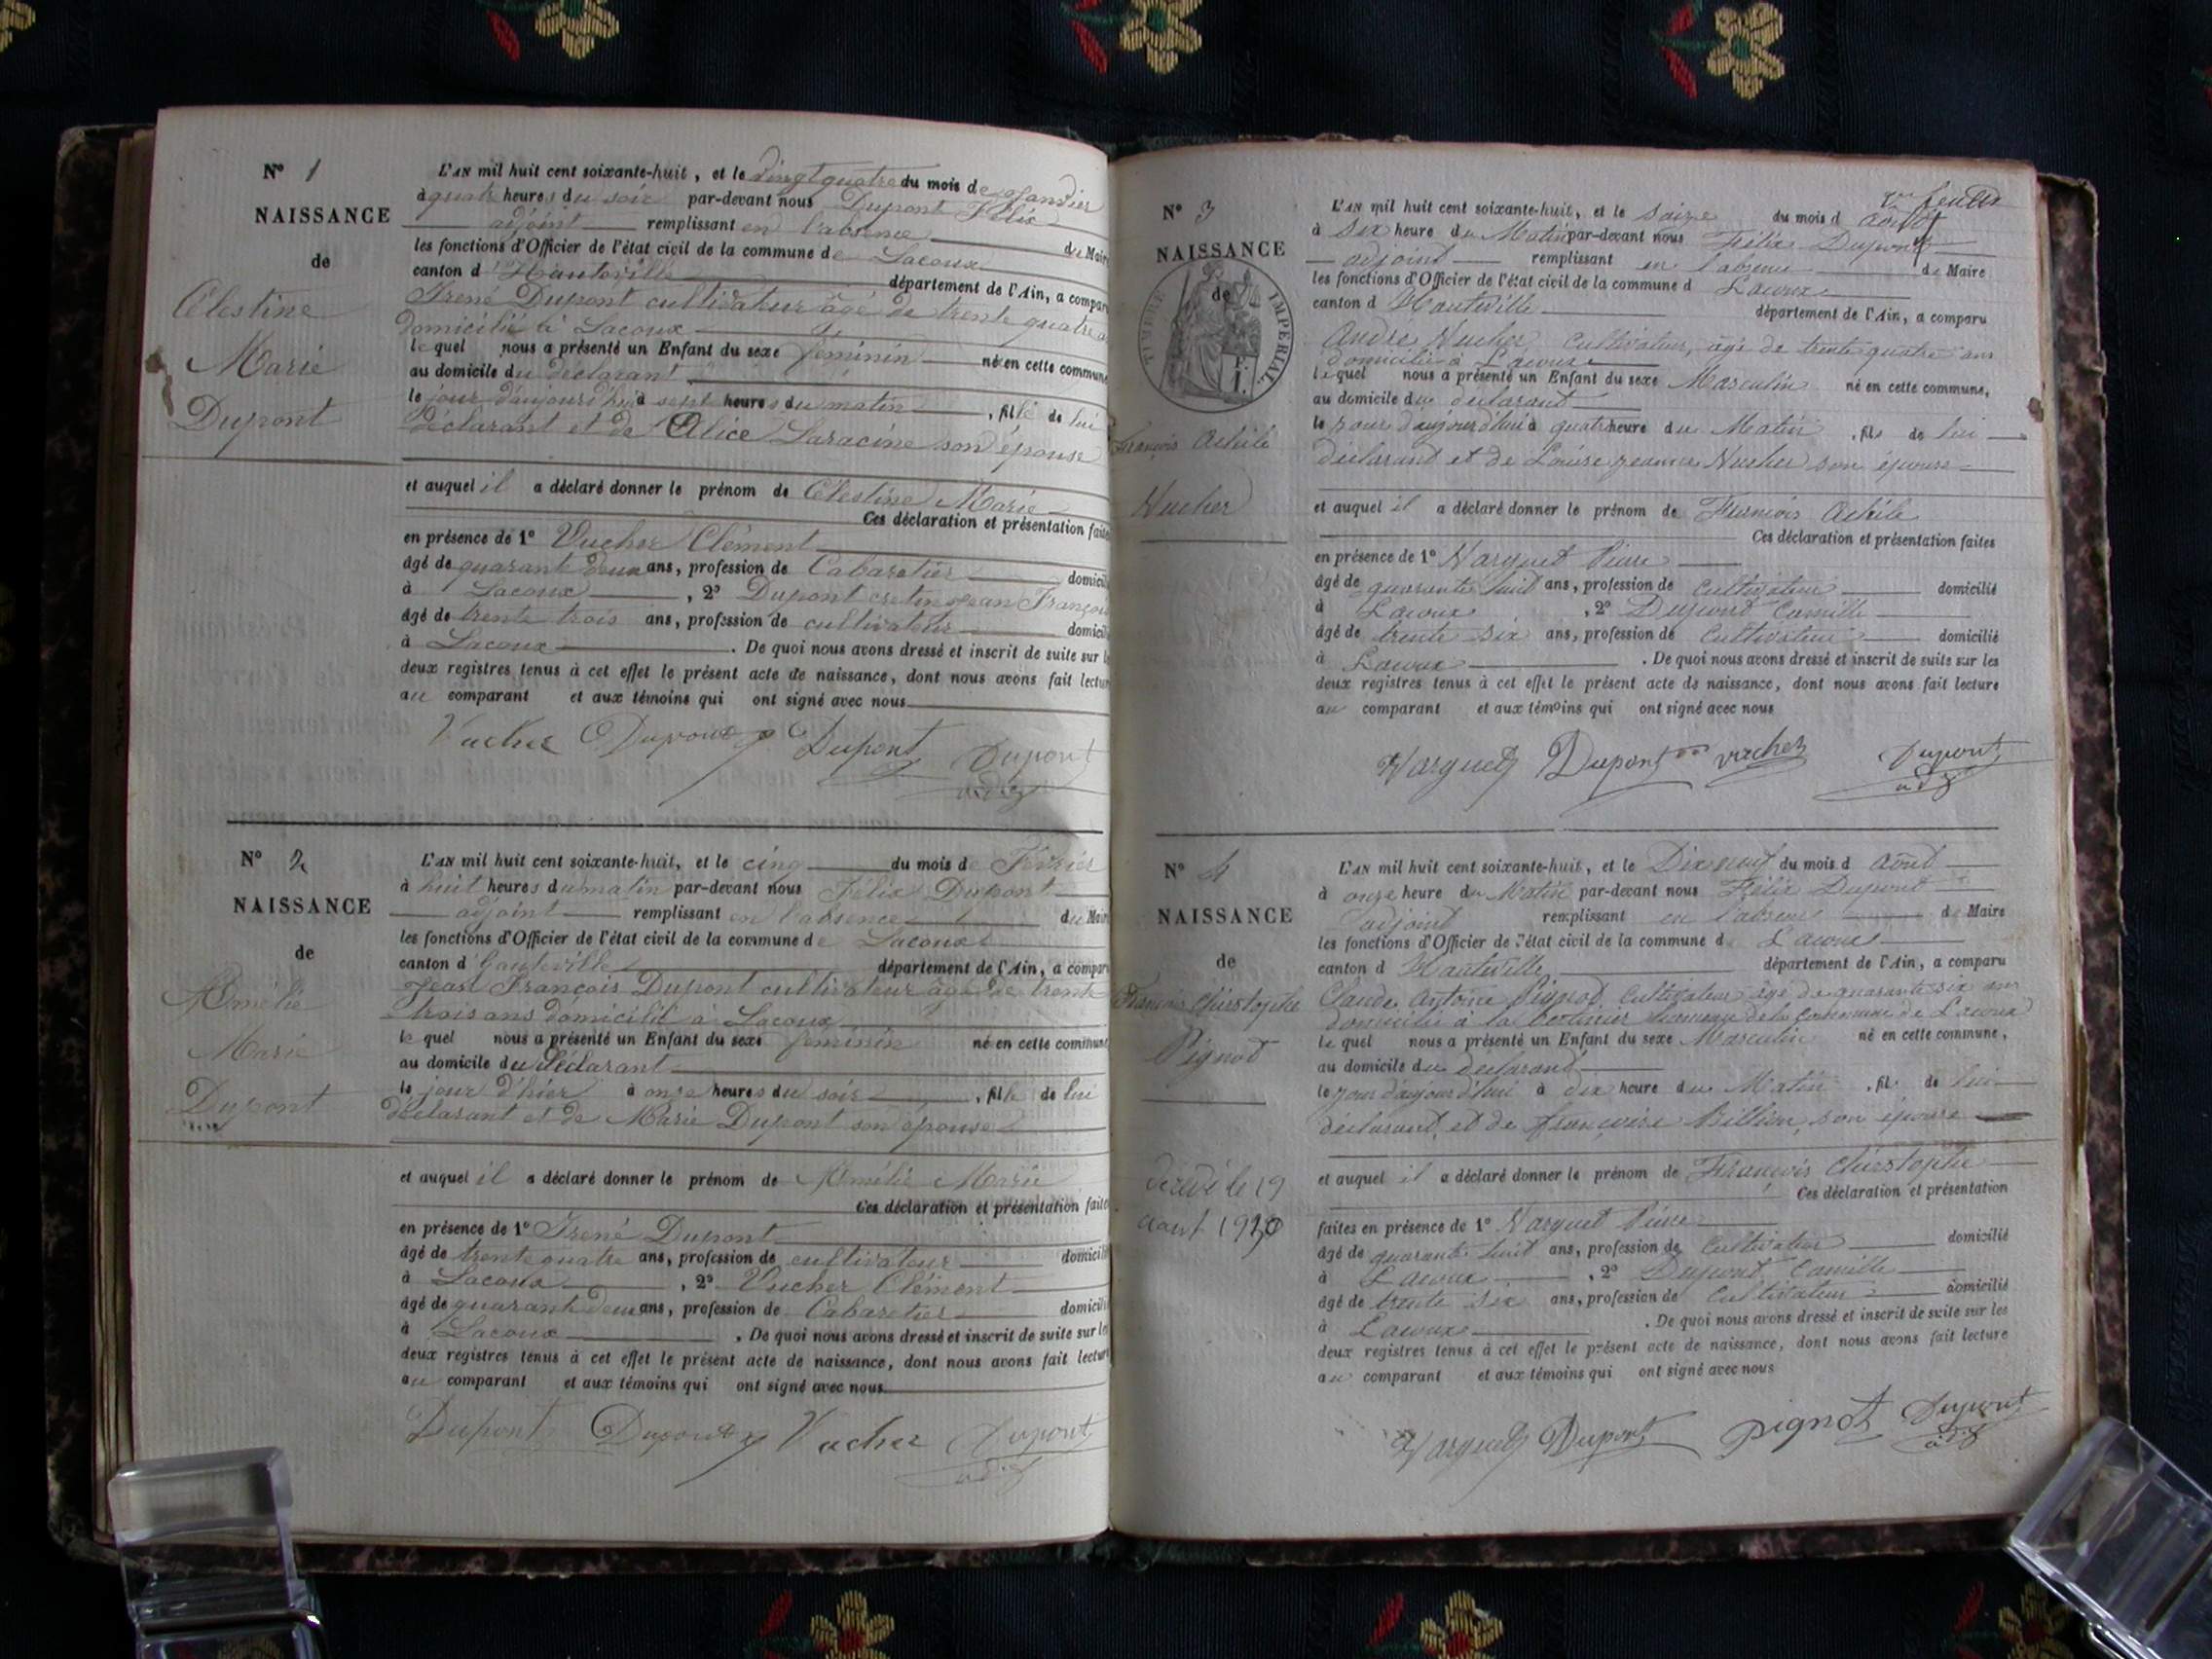 N° 1
NAISSANCE
de
Célestine
Marie
Dupont
L'AN mil huit cent soixante-huit, et le vingt quatre du mois de Janvier
à quatre heures du soir par-devant nous Dupont Félix
adjoint remplissant en l'absence du Maire
les fonctions d'Officier de l'état civil de la commune de Lacoux
canton d'Hauteville département de l'Ain, a comparu
Irené Dupont cultivateur âgé de trente quatre a
domicilié à Lacoux
lequel nous a présenté un Enfant du sexe féminin né en cette commune
au domicile du déclarant
le jour d'aujourd'hui à sept heures du matin, fille de lui
déclarant et de Alice Saracine son épouse
et auquel il a déclaré donner le prénom de Célestine Marie
Ces déclaration et présentation faites
en présence de 1° Vucher Clément
âgé de quarante deux ans, profession de Cabaretier domicilié
à Lacoux, 2° Dupont cretin Jean François
âgé de trente trois ans, profession de cultivateur domicilié
à Lacoux. De quoi nous avons dressé et inscrit de suite sur l
deux registres tenus à cet effet le présent acte de naissance, dont nous avons fait lecture
au comparant et aux témoins qui ont signé avec nous
Vucher Dupont Dupont Dupont
adj
N° 2
NAISSANCE
de
Amélie
Marie
Dupont
L'AN mil huit cent soixante-huit, et le cinq du mois de Février
à huit heures du matin par-devant nous Félix Dupont
adjoint remplissant en l'absence du Maire
les fonctions d'Officier de l'état civil de la commune de Lacoux
canton d'Hauteville département de l'Ain, a comparu
Jean François Dupont cultivateur âgé de trente
trois ans domicilié à Lacoux
lequel nous a présenté un Enfant du sexe féminin né en cette commune
au domicile du déclarant
le jour d'hier à onze heures du soir, fille de lui
déclarant et de Marie Dupont son épouse
et auquel il a déclaré donner le prénom de Amélie Marie
Ces déclaration et présentation faites
en présence de 1° Irené Dupont
âgé de trente quatre ans, profession de cultivateur domicilié
à Lacoux, 2° Vucher Clément
âgé de quarante deux ans, profession de Cabaretier domicilié
à Lacoux. De quoi nous avons dressé et inscrit de suite sur les
deux registres tenus à cet effet le présent acte de naissance, dont nous avons fait lecture
au comparant et aux témoins qui ont signé avec nous
Dupont Dupont Vucher Dupont
adj
N° 3
NAISSANCE
de
TIMBRE IMPÉRIAL
François Achile
Vucher
feuille
L'AN mil huit cent soixante-huit, et le Seize du mois d Août
à six heure du Matin par-devant nous Félix Dupont
adjoint remplissant en l'absence du Maire
les fonctions d'Officier de l'état civil de la commune d Lacoux
canton d Hauteville département de l'Ain, a comparu
André Vucher Cultivateur, âgé de trente quatre ans
domicilié à Lacoux
lequel nous a présenté un Enfant du sexe Masculin né en cette commune,
au domicile du déclarant
le jour d'aujourd'hui à quatre heure du Matin, fils de lui
déclarant et de Louise jeanne Vucher son épouse
et auquel il a déclaré donner le prénom de François Achile
Ces déclaration et présentation faites
en présence de 1° Varguet Pierre
âgé de quarante huit ans, profession de Cultivateur domicilié
à Lacoux, 2° Dupont Camille
âgé de trente six ans, profession de Cultivateur domicilié
à Lacoux. De quoi nous avons dressé et inscrit de suite sur les
deux registres tenus à cet effet le présent acte de naissance, dont nous avons fait lecture
au comparant et aux témoins qui ont signé avec nous
Varguet Dupont vucher Dupont
adj
N° 4
NAISSANCE
de
François Christophe
Pignod
décédé le 19
aout 1930
L'AN mil huit cent soixante-huit, et le Dix neuf du mois d Août
à onze heure du Matin par-devant nous Félix Dupont
adjoint remplissant en l'absence d Maire
les fonctions d'Officier de l'état civil de la commune d Lacoux
canton d Hauteville département de l'Ain, a comparu
Claude Antoine Pignod, Cultivateur âgé de quarante six ans
domicilié à la hameau de la Commune de Lacoux
lequel nous a présenté un Enfant du sexe Masculin né en cette commune,
au domicile du déclarant
le jour d'aujourd'hui à dix heure du Matin, fils de lui
déclarant, et de françoise Billion, son épouse
et auquel il a déclaré donner le prénom de François Christophe
Ces déclaration et présentation
faites en présence de 1° Varguet Pierre
âgé de quarante huit ans, profession de Cultivateur domicilié
à Lacoux, 2° Dupont Camille
âgé de trente six ans, profession de Cultivateur domicilié
à Lacoux. De quoi nous avons dressé et inscrit de suite sur les
deux registres tenus à cet effet le présent acte de naissance, dont nous avons fait lecture
au comparant et aux témoins qui ont signé avec nous
Varguet Dupont pignod Dupont
adj